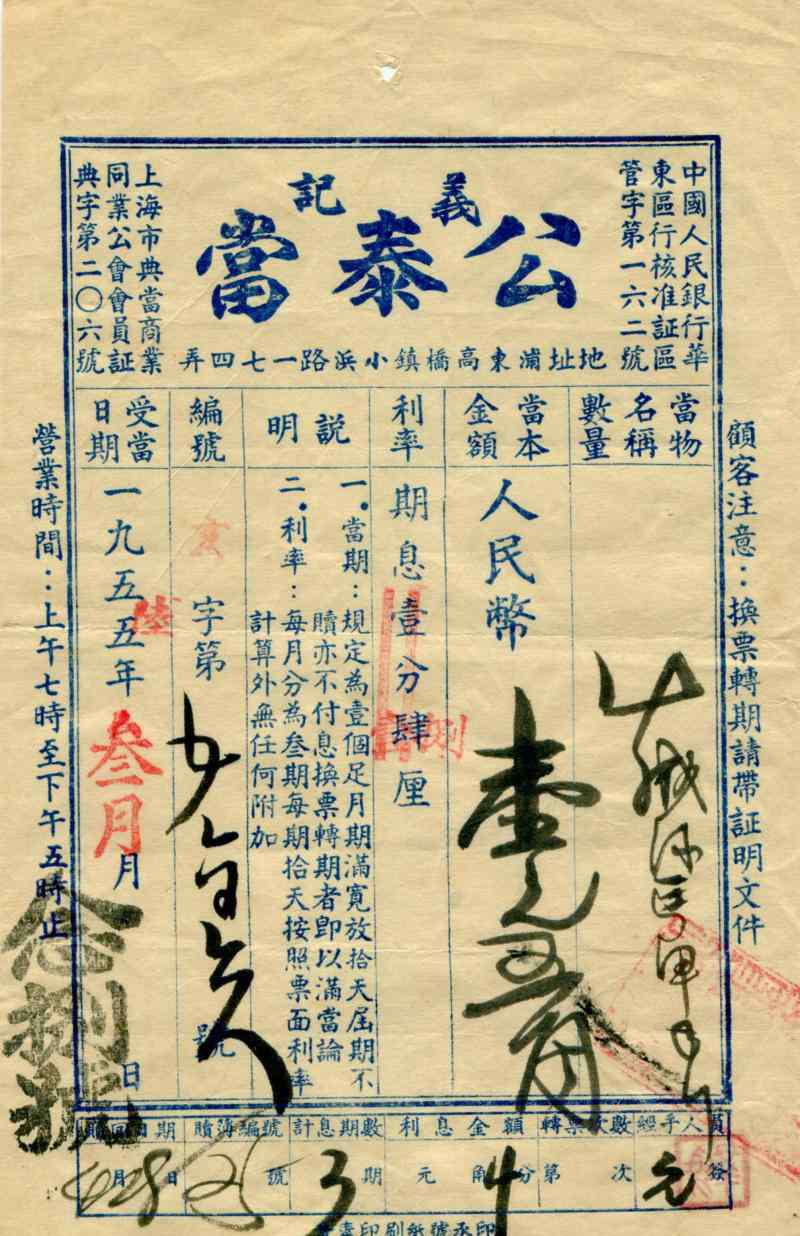 中國人民銀行華
東區行核准証區
管字第一六二號
義記
公泰當
上海市典當商業
同業公會會員証
典字第二〇六號
地址浦東高橋鎮小浜路一七四弄
顧客注意：換票轉期請帶証明文件
當物
名稱
數量
當本
金額
人民幣
壹元五角
利率
期息壹分肆厘
捌
説明
一．當期：規定為壹個足月期滿寬放拾天屆期不
贖亦不付息換票轉期者卽以滿當論
二．利率：每月分為叄期每期拾天按照票面利率
計算外無任何附加
編號
字第
號
受當
日期
一九五五年
陸
叁月
月
念捌號
日
營業時間：上午七時至下午五時止
經手人員
簽
元
轉票次數
第 次
利息金額
元 角 分
4
計息期數
3 期
贖簿編號
號
贖回日期
月 日
印刷紙號承印